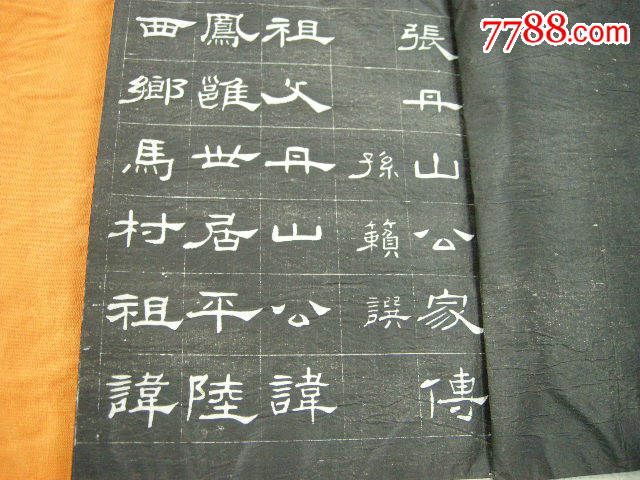 7788.com
張丹山公家傳
孫籟譔
祖父丹山公諱
鳳雝世居平陸
西鄉馬村祖諱